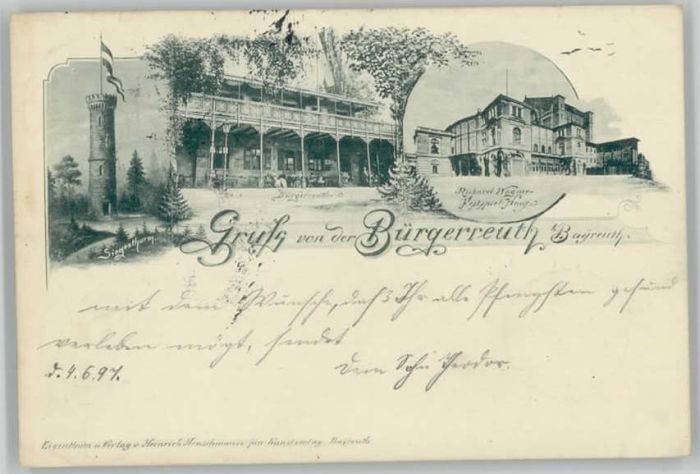 Siegesthurm.
Bürgerreuth
Richard Wagner-
Festspiel-Haus.
Gruß von der Bürgerreuth b/Bayreuth.
mit dem Wunsche, daß Ihr alle Pfingsten gesund
verleben mögt, sendet
d. 4.6.97. Sohn Theodor.
Eigenthum u. Verlag v. Heinrich Heuschmann jun. Kunstverlag, Bayreuth